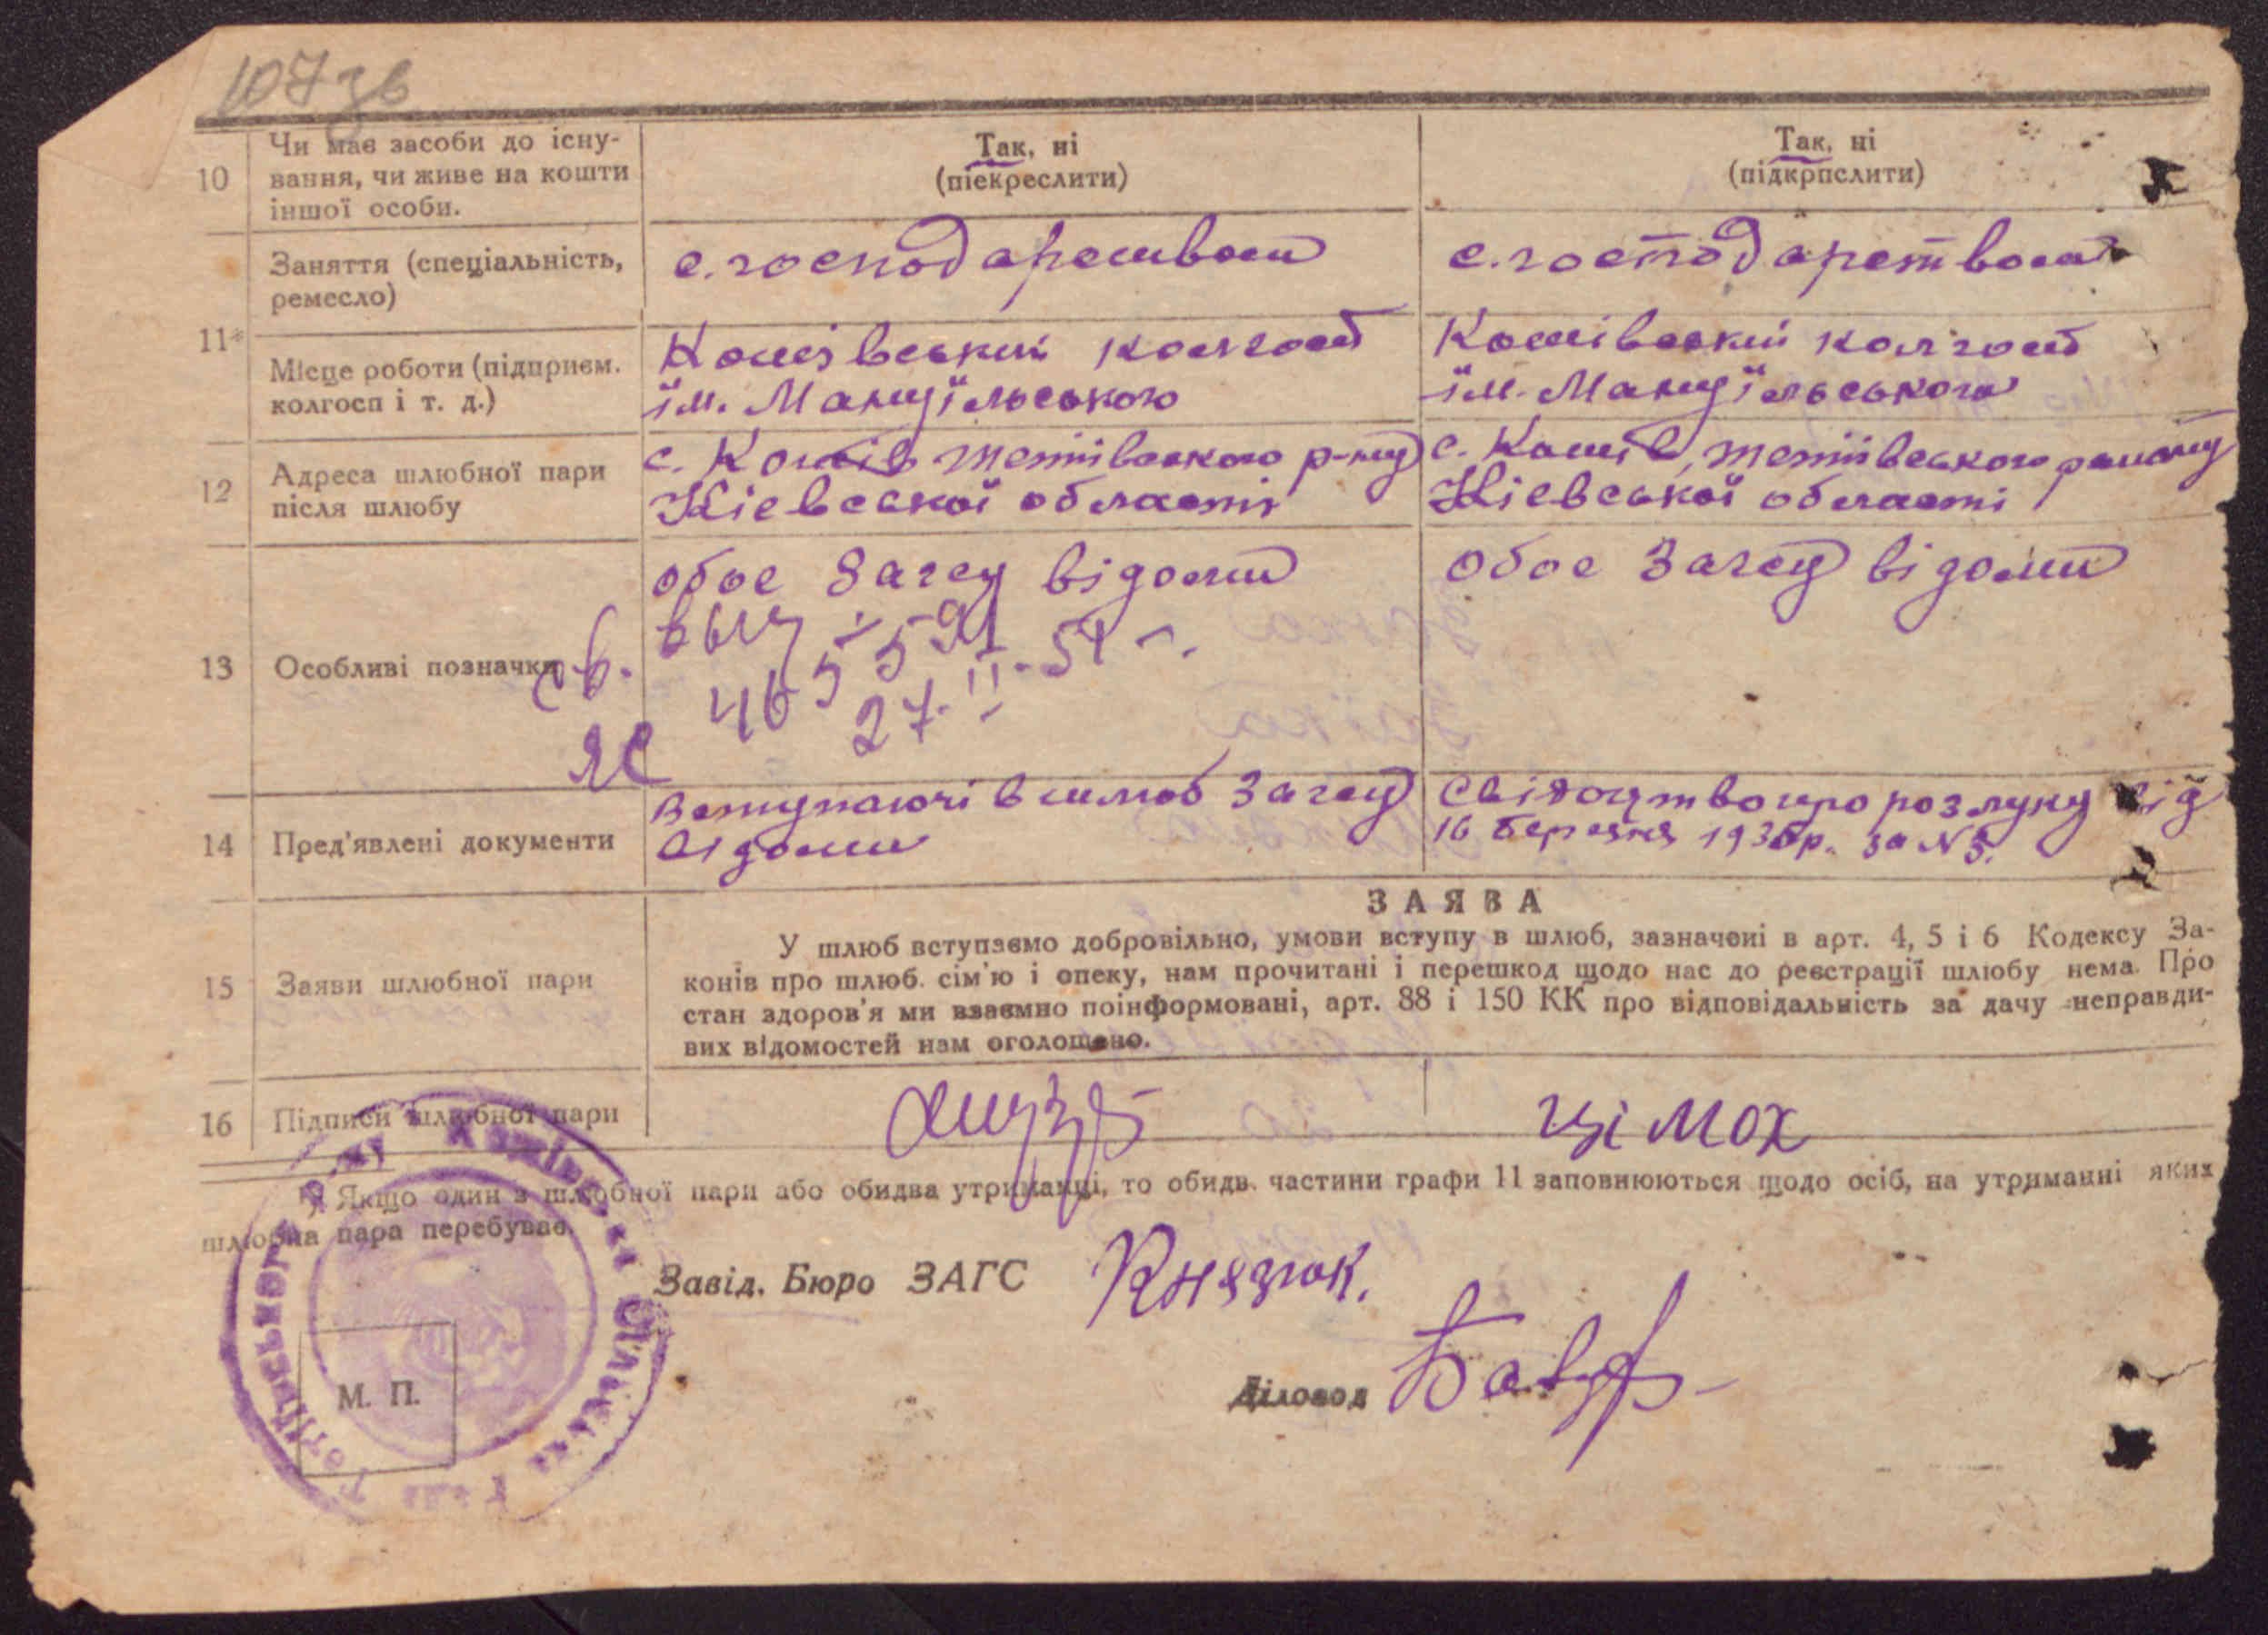 107 зв
10
Чи має засоби до існу-
вання, чи живе на кошти
іншої особи.
Так, ні
(піекреслити)
Так, ні
(підкрпслити)
11*
Заняття (спеціальність,
ремесло)
с. господарством
с. господарством
Місце роботи (підприєм.
колгосп і т. д.)
Кошівський колгосп
їм. Мануїльського
Кошівський колгосп
їм. Мануїльського
12
Адреса шлюбної пари
після шлюбу
с. Кошів Тетіївського р-ну
Кієвської області
с. Кошів, Тетіївського району
Кієвської області
13
Особливі позначки
обое Загсу відоми
св. 
27.II.54 г.
обое Загсу відоми
14
Пред'явлені документи
Вступаючі в шлюб Загсу
відоми
Свідоцтво про розлуку від
16 березня 1936р. за N 5.
15
Заяви шлюбної пари
ЗАЯВА
У шлюб вступаємо добровільно, умови вступу в шлюб, зазначені в арт. 4, 5 і 6 Кодексу За-
конів про шлюб. сім'ю і опеку, нам прочитані і перешкод щодо нас до реєстрації шлюбу нема. Про
стан здоров'я ми взаємно поінформовані, арт. 88 і 150 КК про відповідальність за дачу неправди-
вих відомостей нам оголошено.
16
Підписи шлюбної пари
Цімох
*) Якщо один з шлюбної пари або обидва утриманці, то обидв. частини графи 11 заповнюються щодо осіб, на утриманні яких
шлюбна пара перебуває.
Завід. Бюро ЗАГС
Князюк.
Діловод
М. П.